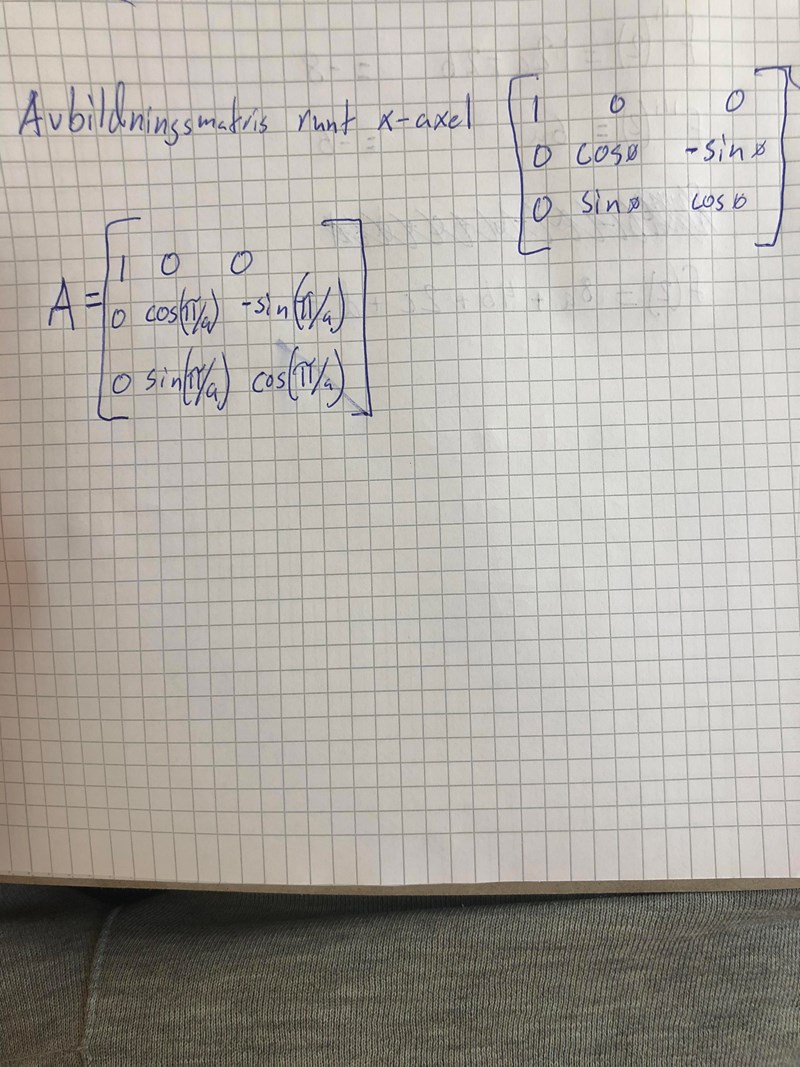 Avbildningsmatris runt x-axel
1 0 0
0 cosø -sinø
0 sinø cosø
A =
1 0 0
0 cos(π/a) -sin(π/a)
0 sin(π/a) cos(π/a)